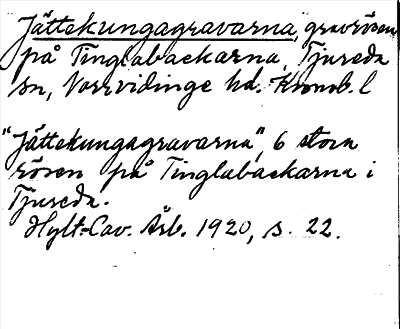 Jättekungagravarna, gravrösen
på Tinglabackarna, Tjureda
sn, Norrvidinge hd. Kronob. l
"Jättekungagravarna", 6 stora
rösen på Tinglabackarna i
Tjureda.
Hylt-Cav. Årb. 1920, s. 22.